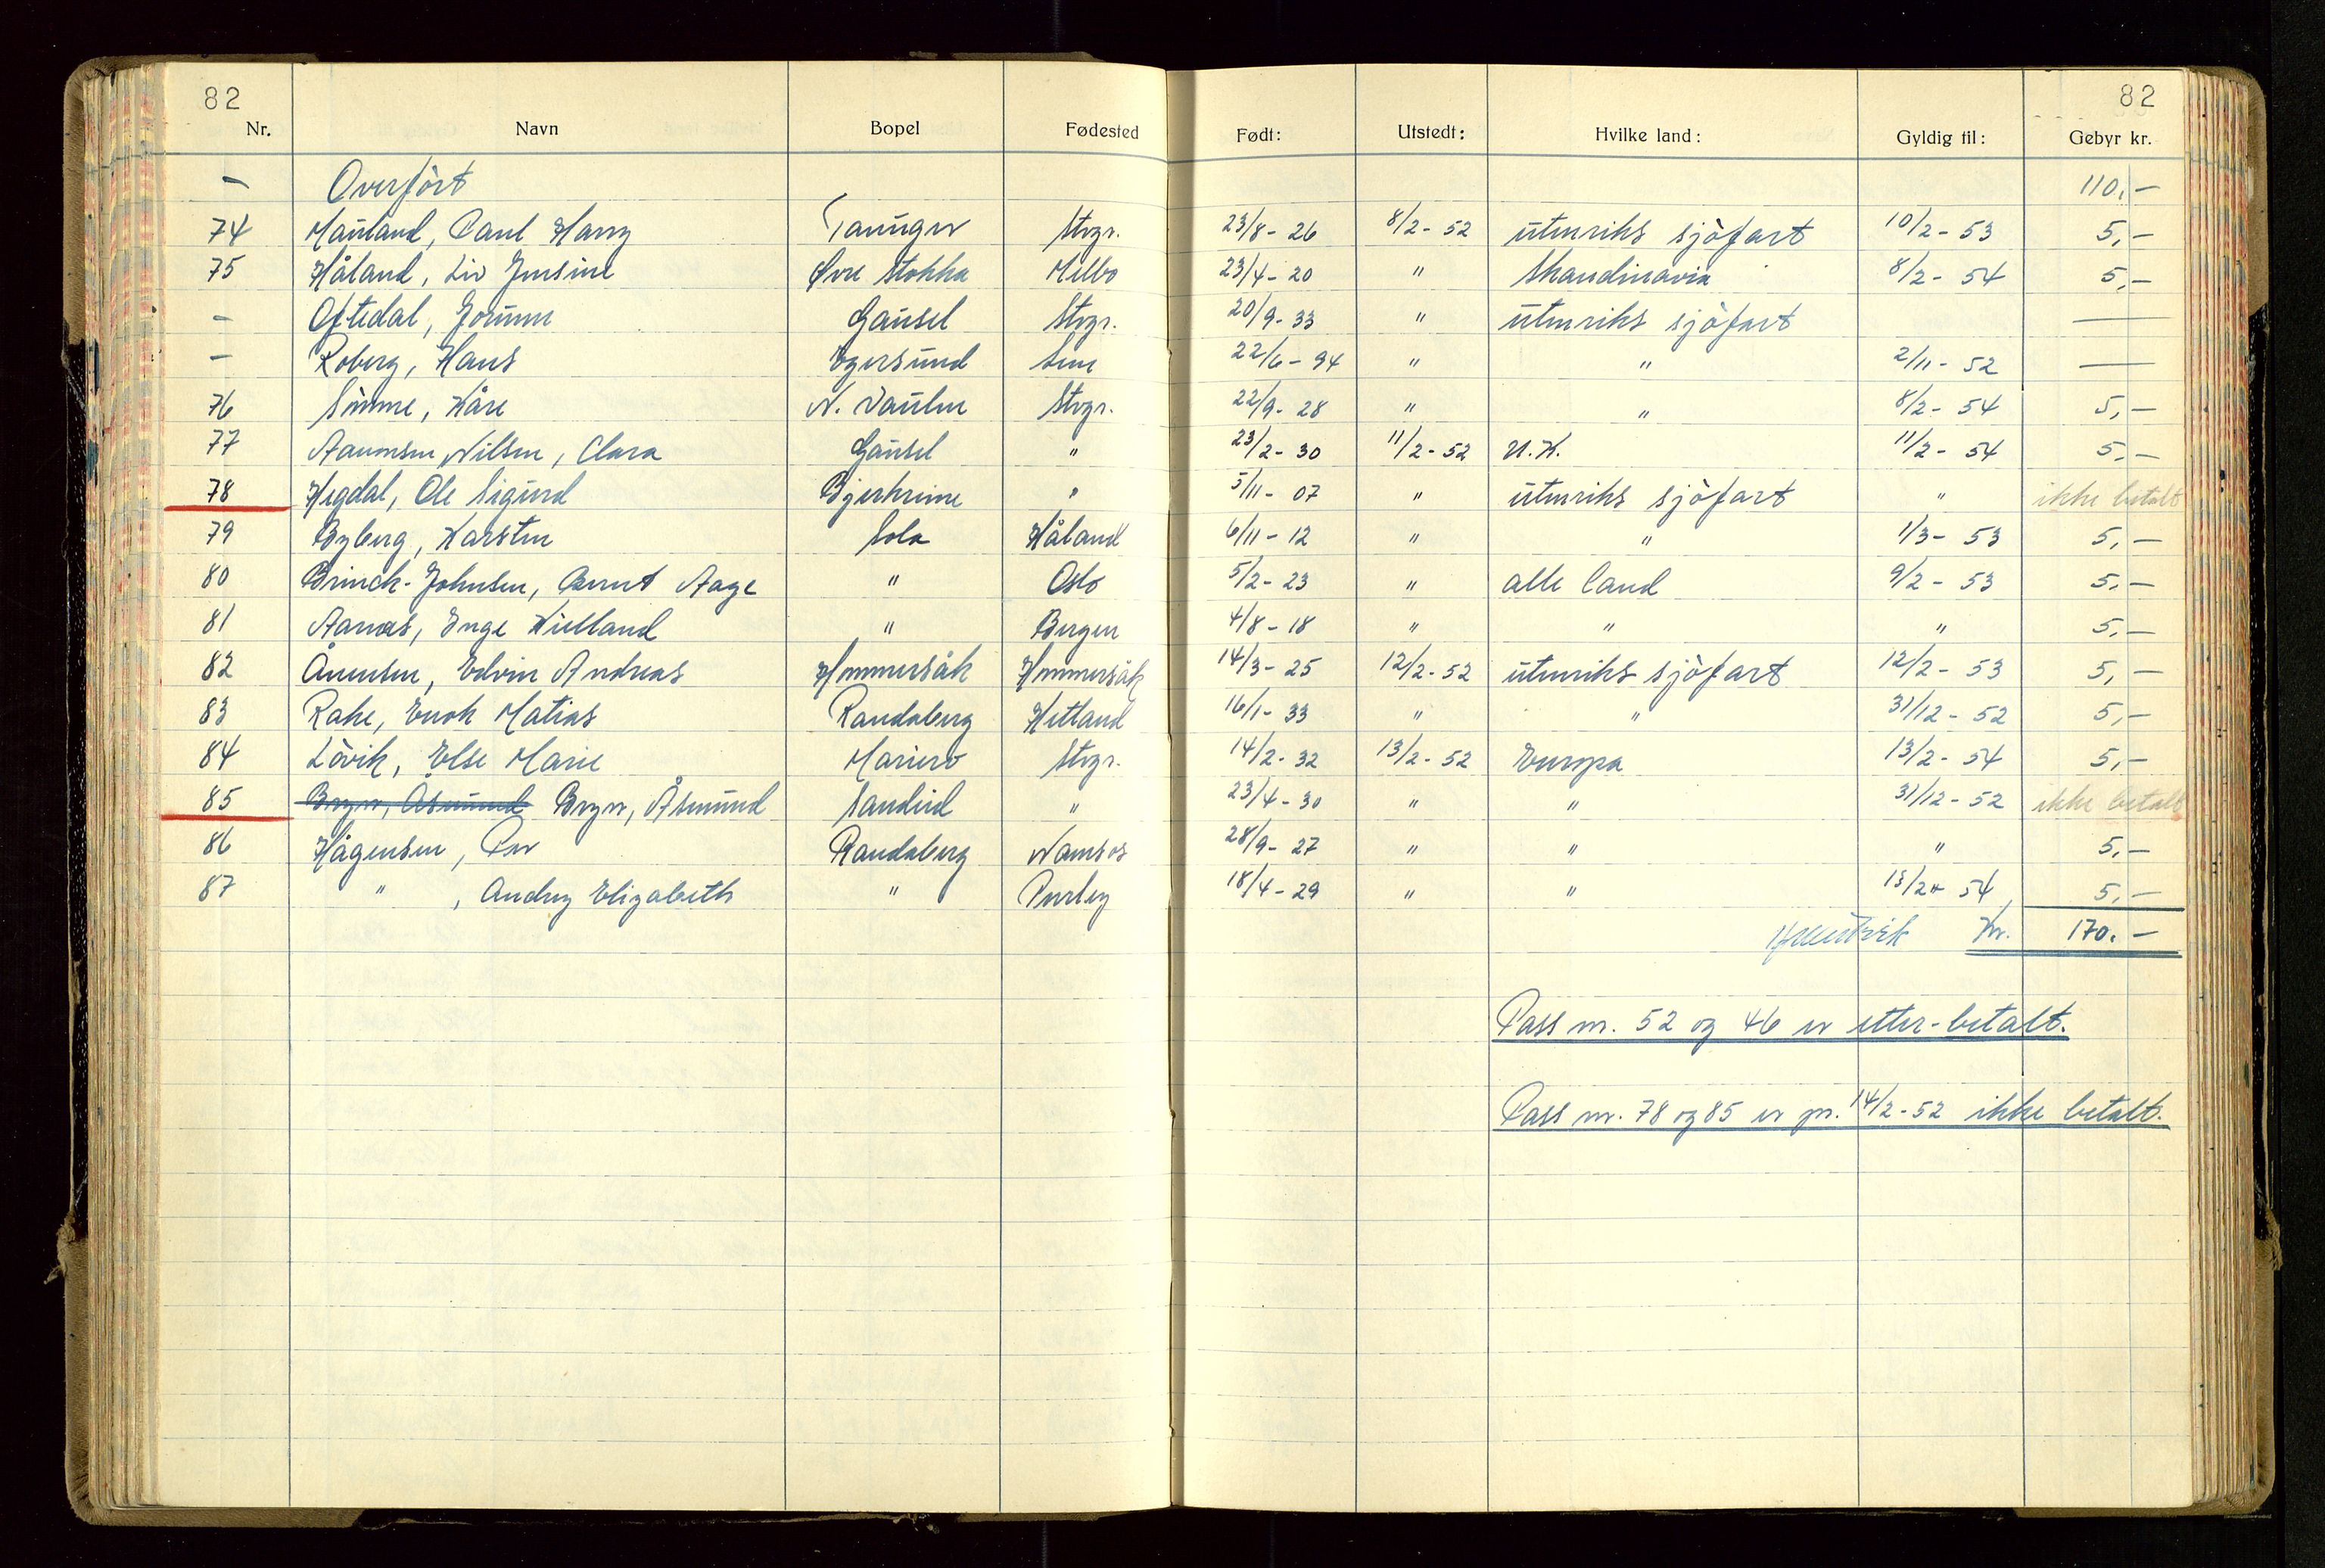 82 82
Nr. Navn Bopel Fødested Født: Utstedt: Hvilke land: Gyldig til: Gebyr kr.
— Overført 110,—
74 Mauland, Paul Harry Tananger Stvgr. 23/8- 26 8/2- 52 utenriks sjøfart 10/2- 53 5,—
75 Håland, Liv Jensine Øvre Stokka Melbo 23/4- 20 " Skandinavia 8/2- 54 5,—
— Oftedal, Jorunn Gausel Stvgr. 20/9- 33 " utenriks sjøfart —
— Roberg, Hans Egersund 22/6- 94 " " 2/11- 52 —
76 Sømme, Kåre N. Vaulen Stvgr. 22/9- 28 " " 8/2- 54 5,—
77 Aanensen Nilsen, Clara Gausel " 23/2- 30 11/2- 52 U.K. 11/2- 54 5,—
78 Hegdal, Ole Sigurd Bjerkreim " 5/11- 07 " utenriks sjøfart " ikke betalt
79 Byberg, Karsten Sola Håland 6/11- 12 " " 1/3- 53 5,—
80 Brinck-Johnsen, Bernt Aage " Oslo 5/2- 23 " alle land 9/2- 53 5,—
81 Aanæs, Inge Kielland " Bergen 4/8- 18 " " " 5,—
82 Ånensen, Edvin Andreas Hommersåk Hommersåk 14/3- 25 12/2- 52 utenriks sjøfart 12/2- 53 5,—
83 Rake, Enok Matias Randaberg Hetland 16/1- 33 " " 31/12- 52 5,—
84 Løvik, Else Marie Mariero Stvgr. 14/2- 32 13/2- 52 Europa 13/2- 54 5,—
85 Bryne, Åsmund Bryne, Åsmund Sandeid " 23/4- 30 " " 31/12- 52 ikke betalt
86 Hågensen, Per Randaberg Namsos 28/9- 27 " " " 5,—
87 " , Audrey Elizabeth " Purley 18/4- 29 " " 13/2- 54 5,—
Kr. 170.—
Pass nr. 52 og 46 er etter-betalt.
Pass nr. 78 og 85 er pr. 14/2- 52 ikke betalt.